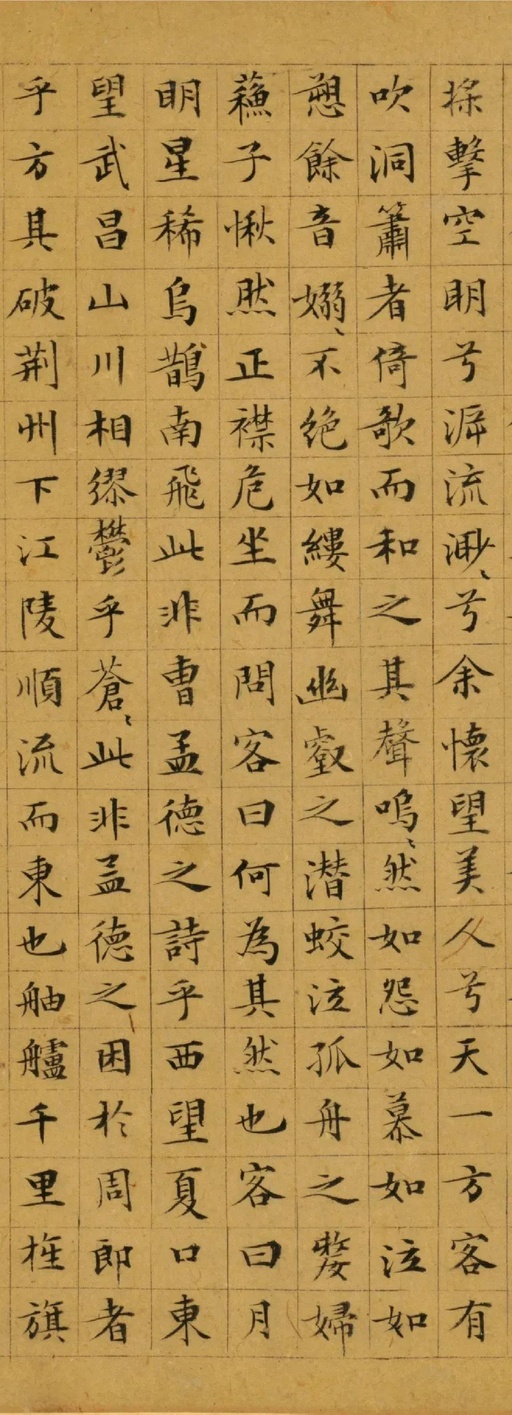 擊空明兮泝流渺〻兮余懷望美人兮天一方客有
吹洞簫者倚歌而和之其聲嗚〻然如怨如慕如泣如
愬餘音嫋〻不絕如縷舞幽壑之潛蛟泣孤舟之嫠婦
蘓子愀然正襟危坐而問客曰何為其然也客曰月
明星稀烏鵲南飛此非曹孟德之詩乎西望夏口東
望武昌山川相繆鬱乎蒼〻此非孟德之困於周郎者
乎方其破荆州下江陵順流而東也舳艫千里旌旗